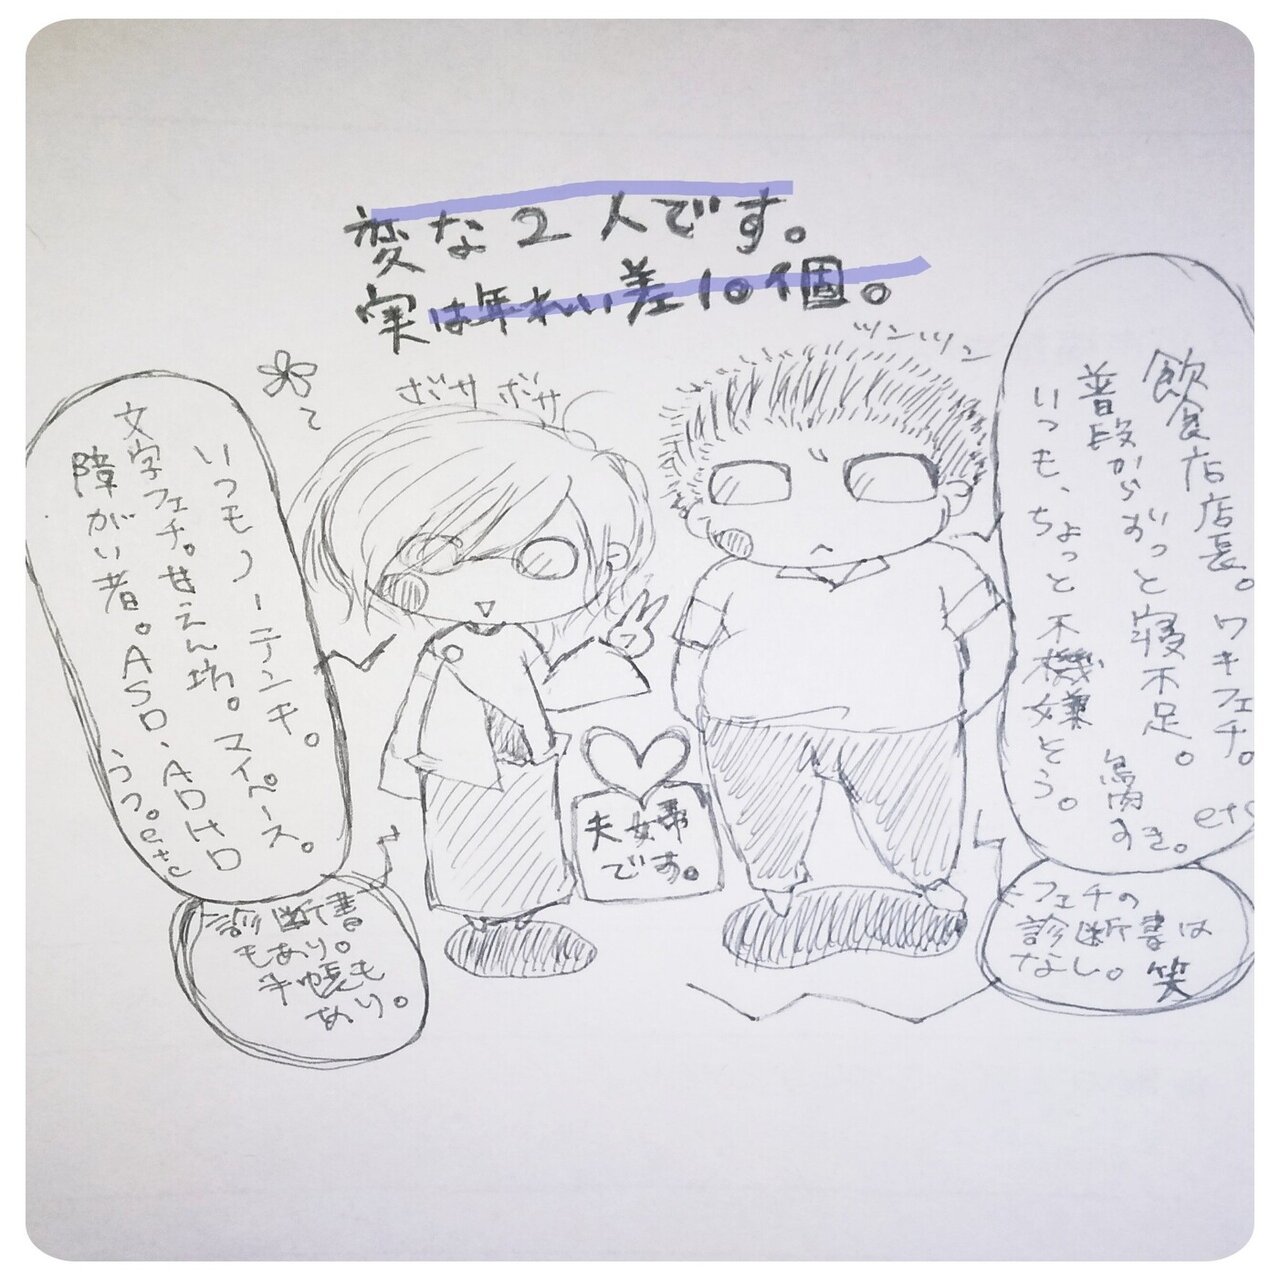 変な2人です。
実は年れい差10個。
ボサボサ
ツンツン
いつもノーテンキ。
文字フェチ。甘えん坊。マイペース。
障がい者。ASD、ADHD
うつ。etc
診断書
もあり。
手帳も
あり。
夫婦
です。
飲食店店長。ワキフェチ。
普段からずっと寝不足。
いつも、ちょっと不機嫌そう。
すき。
etc
フェチの
診断書は
なし。笑